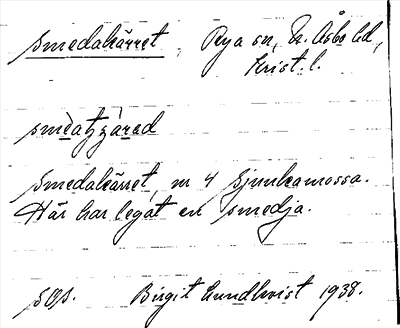 Smedakärret, Rya sn, N. Åsbo hd,
Krist. l.
smèatʒʒàrad
Smedakärret, nr 4 Sjunkamossa.
Här har legat en smedja.
SOS. Birgit Lundkvist 1938.